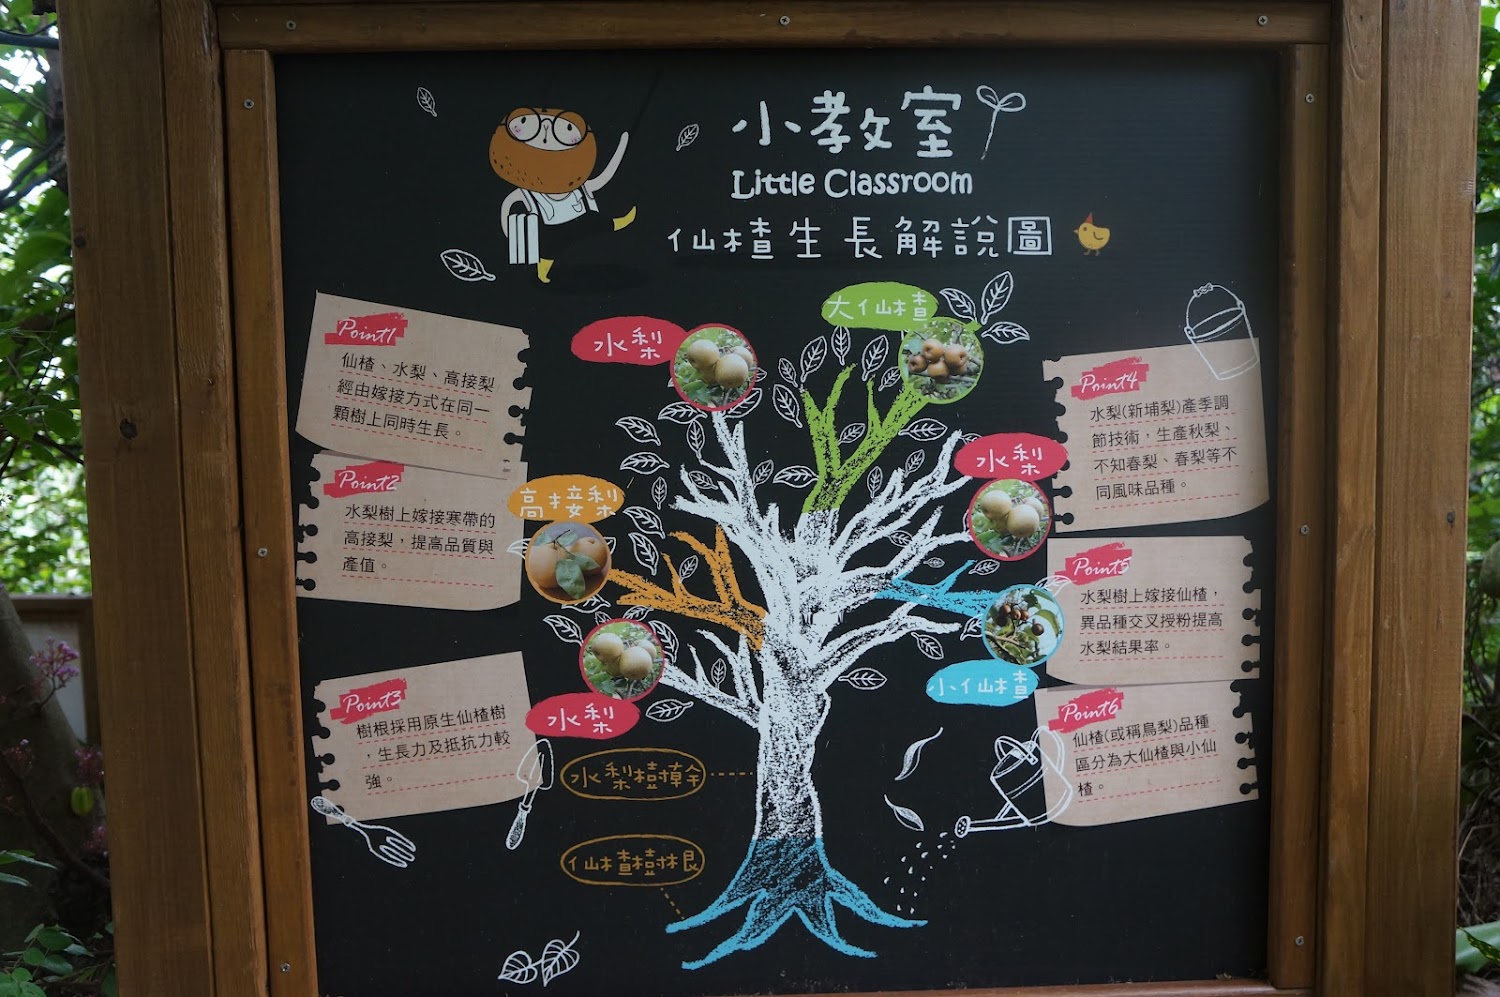 小教室
Little Classroom
仙楂生長解說圖
Point1
仙楂、水梨、高接梨
經由嫁接方式在同一
顆樹上同時生長。
Point2
水梨樹上嫁接寒帶的
高接梨，提高品質與
產值。
Point3
樹根採用原生仙楂樹
，生長力及抵抗力較
強。
水梨
大仙楂
高接梨
水梨
水梨
小仙楂
水梨樹幹
仙楂樹根
Point4
水梨(新埔梨)產季調
節技術，生產秋梨、
不知春梨、春梨等不
同風味品種。
Point5
水梨樹上嫁接仙楂，
異品種交叉授粉提高
水梨結果率。
Point6
仙楂(或稱鳥梨)品種
區分為大仙楂與小仙
楂。